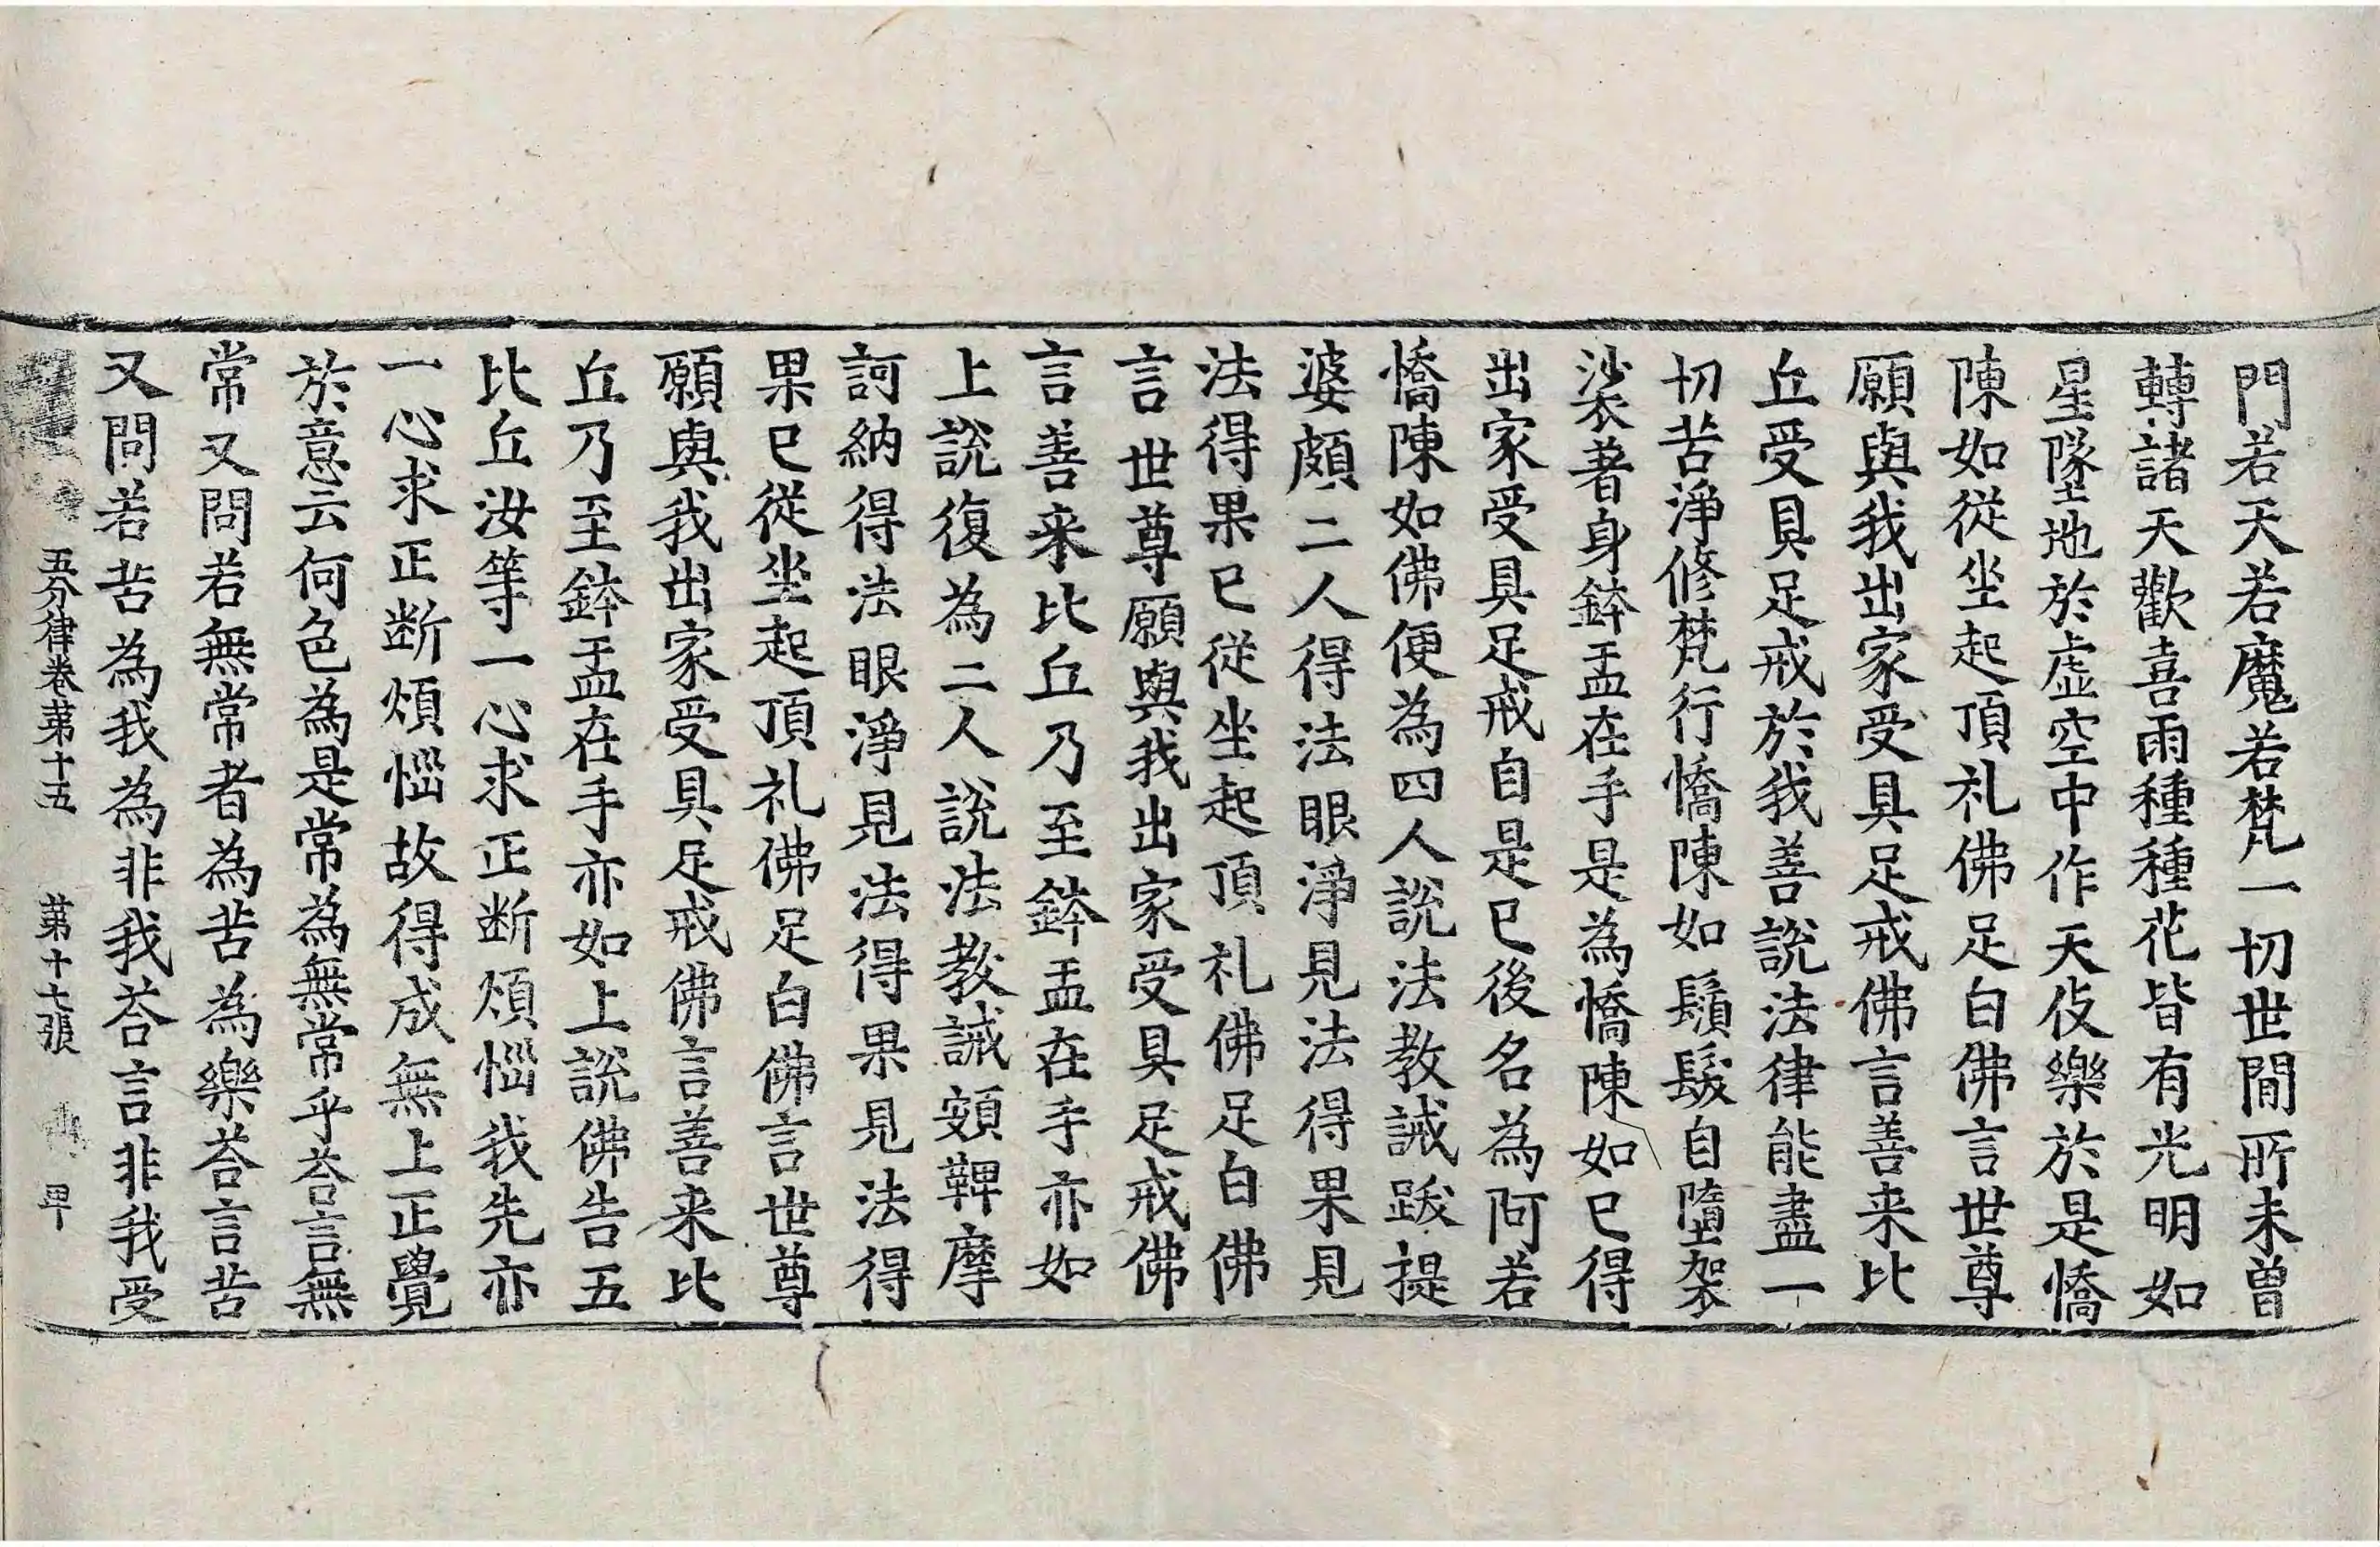 門若天若魔若梵一切世間所未曾
轉諸天歡喜雨種種花皆有光明如
星墜地於虛空中作天伎樂於是憍
陳如從坐起頂礼佛足白佛言世尊
願與我出家受具足戒佛言善来比
丘受具足戒於我善說法律能盡一
切苦淨修梵行憍陳如鬚髮自墮袈
裟著身鉢盂在手是為憍陳如已得
出家受具足戒自是已後名為阿若
憍陳如佛便為四人說法教誡跋提
婆頗二人得法眼淨見法得果見
法得果已從坐起頂礼佛足白佛
言世尊願與我出家受具足戒佛
言善来比丘乃至鉢盂在手亦如
上說復為二人說法教誡頞鞞摩
訶納得法眼淨見法得果見法得
果已從坐起頂礼佛足白佛言世尊
願與我出家受具足戒佛言善来比
丘乃至鉢盂在手亦如上說佛告五
比丘汝等一心求正断煩惱我先亦
一心求正断煩惱故得成無上正覺
於意云何色為是常為無常乎荅言無
常又問若無常者為苦為樂荅言苦
又問若苦為我為非我荅言非我受
五分律卷第十五 第十七張